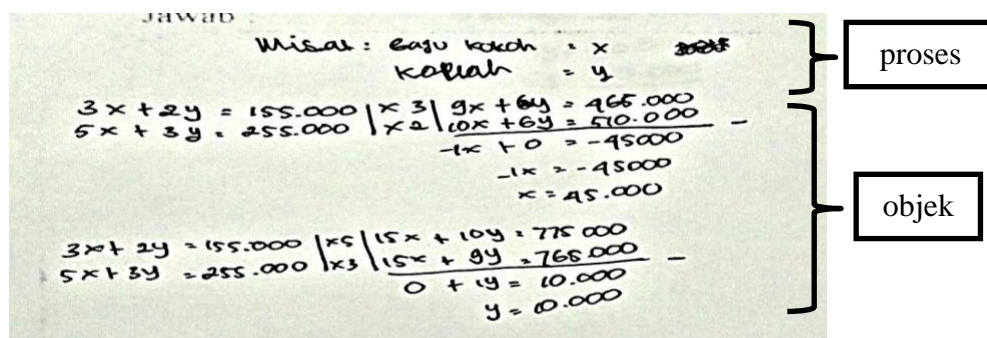 Jawab :
Misal : Baju kokoh = x
Kopiah = y
proses
3x + 2y = 155.000 | x 3 | 9x + 6y = 465.000
5x + 3y = 255.000 | x 2 | 10x + 6y = 510.000 -
-1x + 0 = -45000
-1x = -45000
x = 45.000
objek
3x + 2y = 155.000 | x5 | 15x + 10y = 775 000
5x + 3y = 255.000 | x3 | 15x + 9y = 765.000 -
0 + 1y = 10.000
y = 10.000